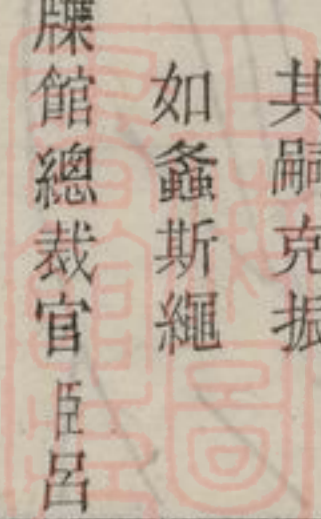 其嗣克振
如螽斯繩
牒館總裁官臣呂